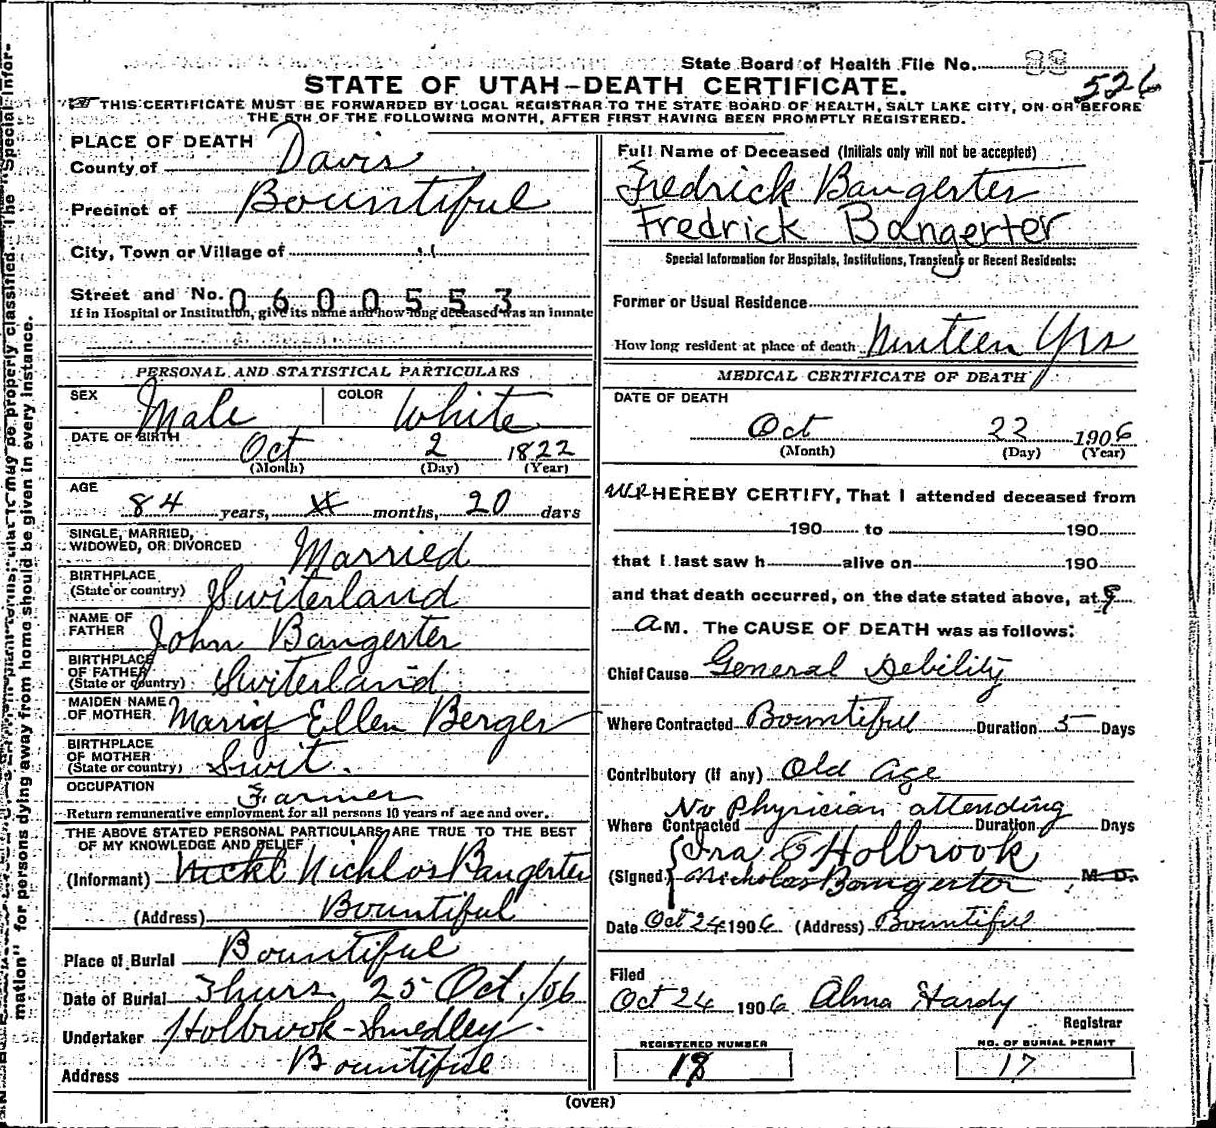 State Board of Health File No. 88
526
STATE OF UTAH-DEATH CERTIFICATE.
THIS CERTIFICATE MUST BE FORWARDED BY LOCAL REGISTRAR TO THE STATE BOARD OF HEALTH, SALT LAKE CITY, ON OR BEFORE
THE 5TH OF THE FOLLOWING MONTH, AFTER FIRST HAVING BEEN PROMPTLY REGISTERED.
PLACE OF DEATH
County of Davis
Precinct of Bountiful
City, Town or Village of "
Street and No. 0600553
If in Hospital or Institution, give its name and how long deceased was an inmate
PERSONAL AND STATISTICAL PARTICULARS
SEX Male COLOR White
DATE OF BIRTH Oct 2 1822
(Month) (Day) (Year)
AGE
84 years, months, 20 days
SINGLE, MARRIED,
WIDOWED, OR DIVORCED Married
BIRTHPLACE
(State or country) Switerland
NAME OF
FATHER John Bangerter
BIRTHPLACE
OF FATHER
(State or country) Switerland
MAIDEN NAME
OF MOTHER Marig Ellen Berger
BIRTHPLACE
OF MOTHER
(State or country) Swit.
OCCUPATION Farmer
Return remunerative employment for all persons 10 years of age and over.
THE ABOVE STATED PERSONAL PARTICULARS ARE TRUE TO THE BEST
OF MY KNOWLEDGE AND BELIEF
(Informant) Nickl Nichlos Bangerter
(Address) Bountiful
Place of Burial Bountiful
Date of Burial Thurs. 25 Oct./06
Undertaker Holbrook-Smedley.
Address Bountiful
Full Name of Deceased (Initials only will not be accepted)
Fredrick Bangerter
Fredrick Bangerter
Special Information for Hospitals, Institutions, Transients or Recent Residents:
Former or Usual Residence
How long resident at place of death Ninteen Yrs
MEDICAL CERTIFICATE OF DEATH
DATE OF DEATH
Oct 22 1906
(Month) (Day) (Year)
We HEREBY CERTIFY, That I attended deceased from
190 to 190
that I last saw h alive on 190
and that death occurred, on the date stated above, at 9
A M. The CAUSE OF DEATH was as follows:
Chief Cause General Debility
Where Contracted Bountiful Duration 5 Days
Contributory (if any) Old Age
No Physician attending
Where Contracted Duration Days
Ira C Holbrook
(Signed) Nicholas Bangerter, M. D.
Date Oct 24 1906 (Address) Bountiful
Filed
Oct 24 1906 Alma Hardy
Registrar
REGISTERED NUMBER
18
NO. OF BURIAL PERMIT
17
(OVER)
mation" for persons dying away from home should be given in every instance.